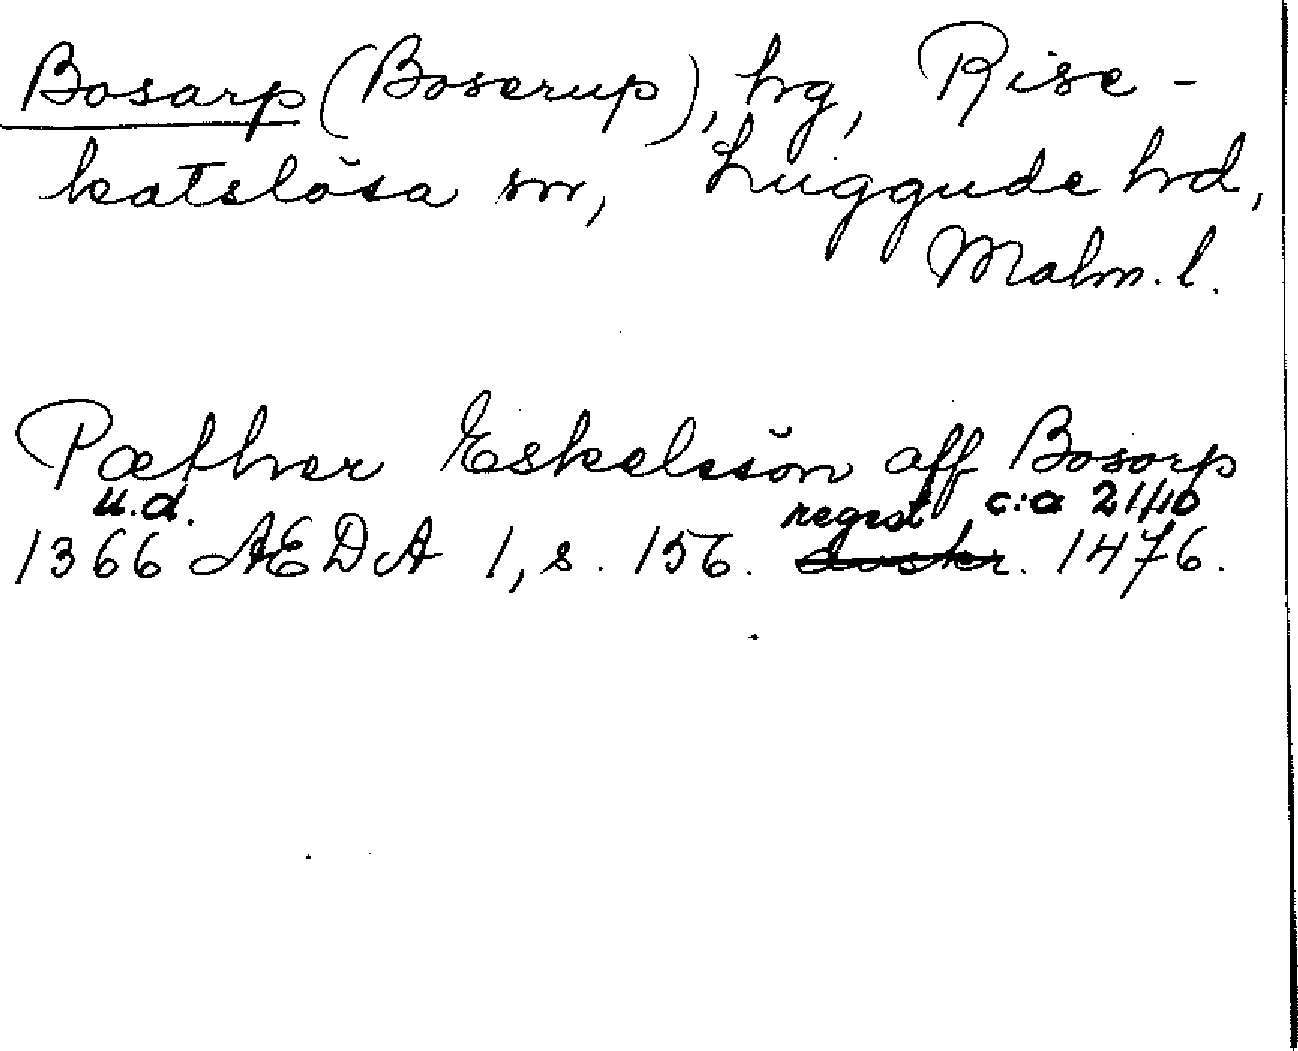 Bosarp (Boserup), hg, Rise-
katslösa sn, Luggude hd,
Malm. l.
Pæthær Eskelssön aff Bosorp
u.d. regest c:a 21/10
1366 ÆDA 1, s. 156. avskr. 1476.